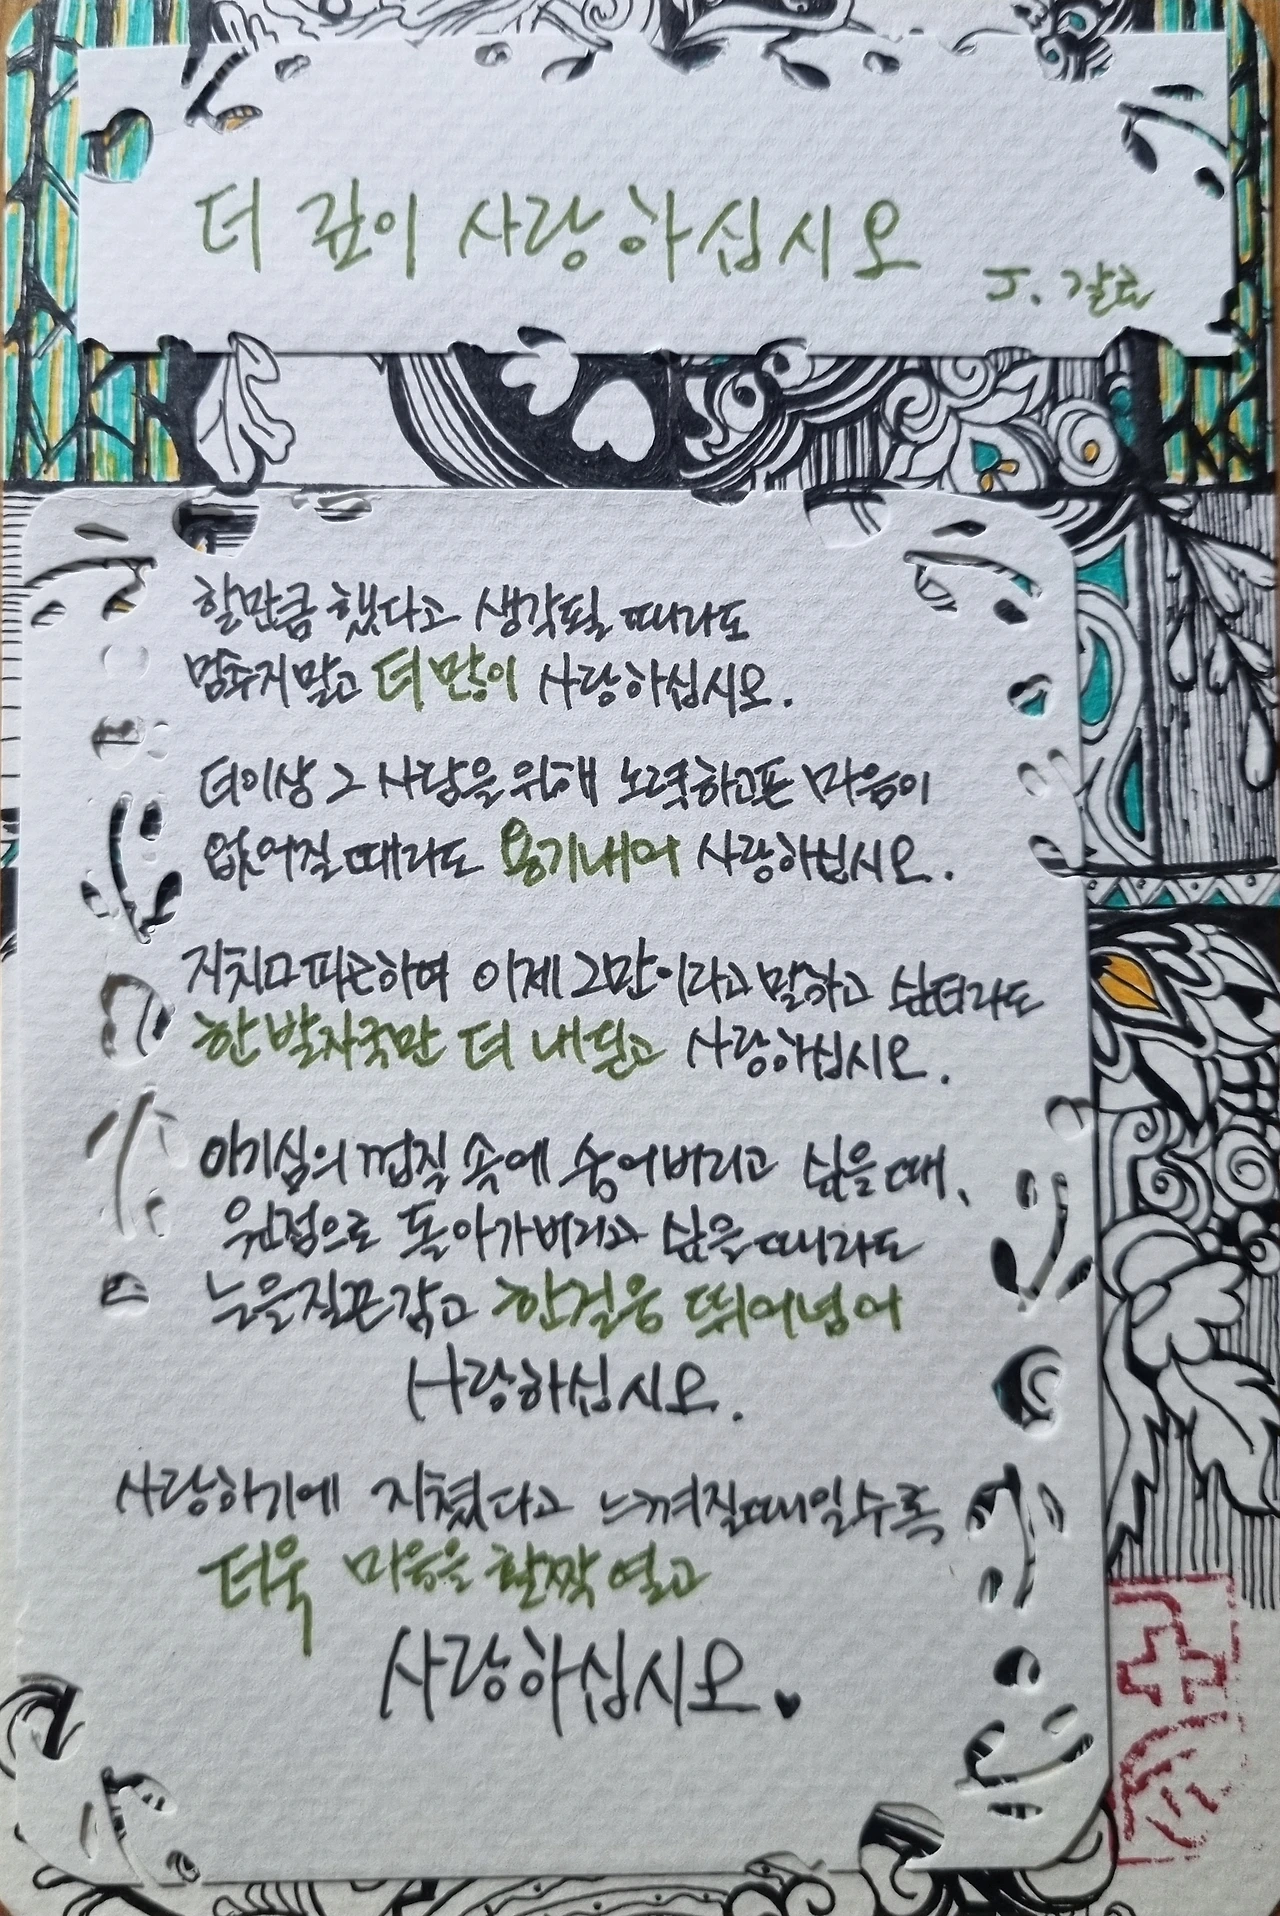 더 깊이 사랑하십시오
J. 갈로
할만큼 했다고 생각될 때라도
멈추지말고 더 많이 사랑하십시오.
더이상 그 사람을 위해 노력하고픈 마음이
없어질 때라도 용기내어 사랑하십시오.
지치다 피곤하여 이제 그만이라고 말하고 싶더라도
한 발자국만 더 내딛고 사랑하십시오.
이기심의 껍질 속에 숨어버리고 싶을 때,
원점으로 돌아가버리고 싶을 때라도
눈을질끈감고 한걸음 뛰어넘어
사랑하십시오.
사랑하기에 지쳤다고 느껴질때일수록
더욱 마음을 활짝 열고
사랑하십시오.